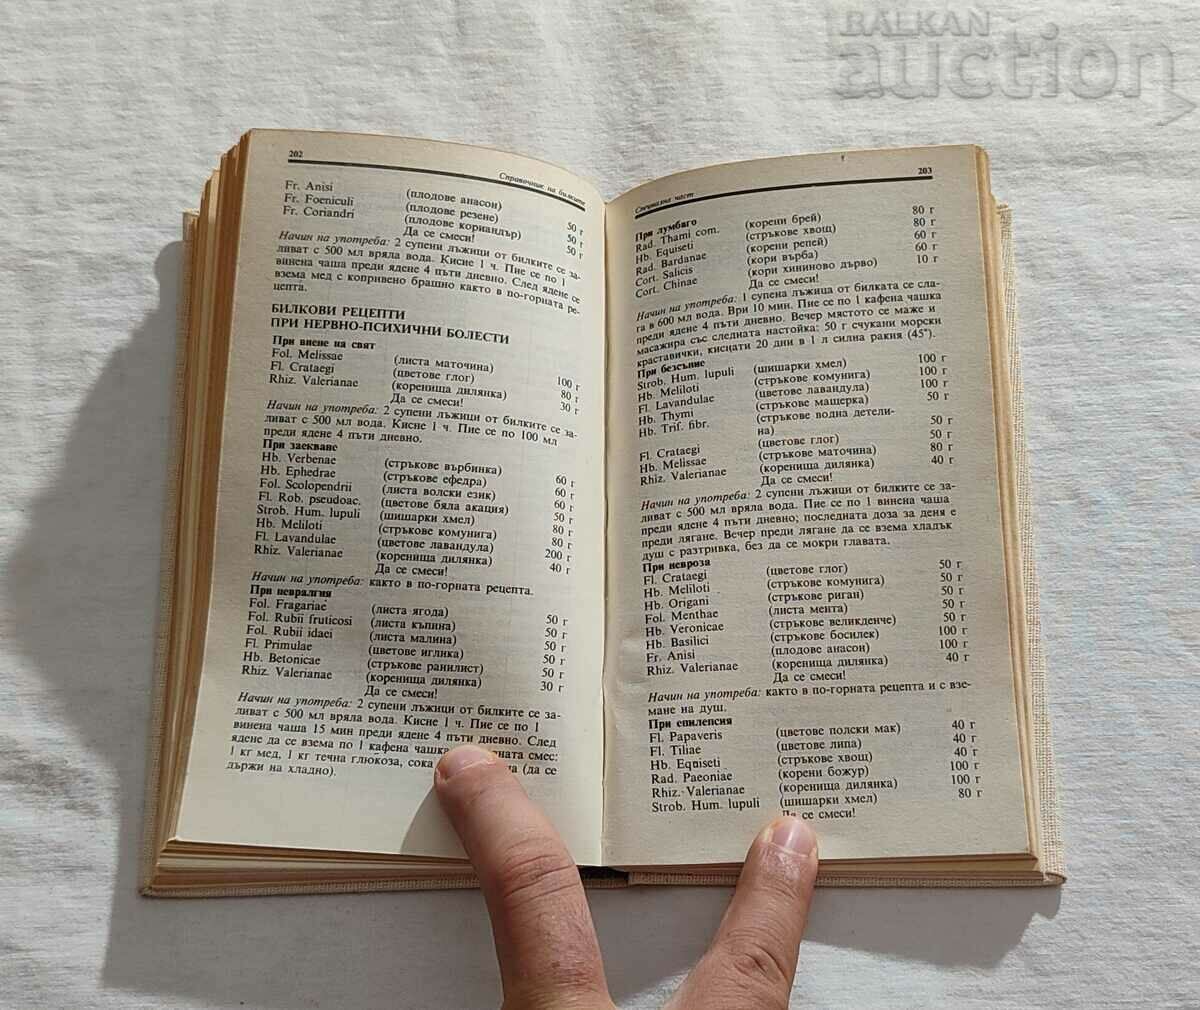 BALKAN
auction
202
Справочник на билките
Fr. Anisi (плодове анасон) 50 г
Fr. Foeniculi (плодове резене) 50 г
Fr. Coriandri (плодове кориандър) 50 г
Да се смеси!
Начин на употреба: 2 супени лъжици от билките се за-
ливат с 500 мл вряла вода. Кисне 1 ч. Пие се по 1
винена чаша преди ядене 4 пъти дневно. След ядене се
взема мед с копривено брашно както в по-горната ре-
цепта.
БИЛКОВИ РЕЦЕПТИ
ПРИ НЕРВНО-ПСИХИЧНИ БОЛЕСТИ
При виене на свят
Fol. Melissae (листа маточина) 100 г
Fl. Crataegi (цветове глог) 80 г
Rhiz. Valerianae (коренища дилянка) 30 г
Да се смеси!
Начин на употреба: 2 супени лъжици от билките се за-
ливат с 500 мл вряла вода. Кисне 1 ч. Пие се по 100 мл
преди ядене 4 пъти дневно.
При заекване
Hb. Verbenae (стръкове върбинка) 60 г
Hb. Ephedrae (стръкове ефедра) 60 г
Fol. Scolopendrii (листа волски език) 60 г
Fl. Rob. pseudoac. (цветове бяла акация) 50 г
Strob. Hum. lupuli (шишарки хмел) 80 г
Hb. Meliloti (стръкове комунига) 80 г
Fl. Lavandulae (цветове лавандула) 200 г
Rhiz. Valerianae (коренища дилянка) 40 г
Да се смеси!
Начин на употреба: както в по-горната рецепта.
При невралгия
Fol. Fragariae (листа ягода) 50 г
Fol. Rubii fruticosi (листа къпина) 50 г
Fol. Rubii idaei (листа малина) 50 г
Fl. Primulae (цветове иглика) 50 г
Hb. Betonicae (стръкове ранилист) 50 г
Rhiz. Valerianae (коренища дилянка) 30 г
Да се смеси!
Начин на употреба: 2 супени лъжици от билките се за-
ливат с 500 мл вряла вода. Кисне 1 ч. Пие се по 1
винена чаша 15 мин преди ядене 4 пъти дневно. След
ядене да се взема по 1 кафена чашка смес:
1 кг мед, 1 кг течна глюкоза, сока (да се
държи на хладно).
Специална част
203
При лумбаго
Rad. Thami com. (корени брей) 80 г
Hb. Equiseti (стръкове хвощ) 80 г
Rad. Bardanae (корени репей) 60 г
Cort. Salicis (кори върба) 60 г
Cort. Chinae (кори хининово дърво) 10 г
Да се смеси!
Начин на употреба: 1 супена лъжица от билката се сла-
га в 600 мл вода. Ври 10 мин. Пие се по 1 кафена чашка
преди ядене 4 пъти дневно. Вечер мястото се маже и
масажира със следната настойка: 50 г счукани морски
краставички, киснати 20 дни в 1 л силна ракия (45°).
При безсъние
Strob. Hum. lupuli (шишарки хмел) 100 г
Hb. Meliloti (стръкове комунига) 100 г
Fl. Lavandulae (цветове лавандула) 100 г
Hb. Thymi (стръкове мащерка) 50 г
Hb. Trif. fibr. (стръкове водна детели-
на) 50 г
Fl. Crataegi (цветове глог) 50 г
Hb. Melissae (стръкове маточина) 80 г
Rhiz. Valerianae (коренища дилянка) 40 г
Да се смеси!
Начин на употреба: 2 супени лъжици от билките се за-
ливат с 500 мл вряла вода. Пие се по 1 винена чаша
преди ядене 4 пъти дневно; последната доза за деня е
преди лягане. Вечер преди лягане да се взема хладък
душ с разтривка, без да се мокри главата.
При невроза
Fl. Crataegi (цветове глог) 50 г
Hb. Meliloti (стръкове комунига) 50 г
Hb. Origani (стръкове риган) 50 г
Fol. Menthae (листа мента) 50 г
Hb. Veronicae (стръкове великденче) 50 г
Hb. Basilici (стръкове босилек) 100 г
Fr. Anisi (плодове анасон) 100 г
Rhiz. Valerianae (коренища дилянка) 40 г
Да се смеси!
Начин на употреба: както в по-горната рецепта и с взе-
мане на душ.
При епилепсия
Fl. Papaveris (цветове полски мак) 40 г
Fl. Tiliae (цветове липа) 40 г
Hb. Equiseti (стръкове хвощ) 40 г
Rad. Paeoniae (корени божур) 100 г
Rhiz. Valerianae (коренища дилянка) 100 г
Strob. Hum. lupuli (шишарки хмел) 80 г
Да се смеси!